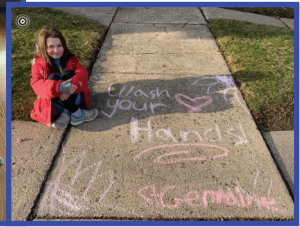 Wash
your
Hands!
St Germaine